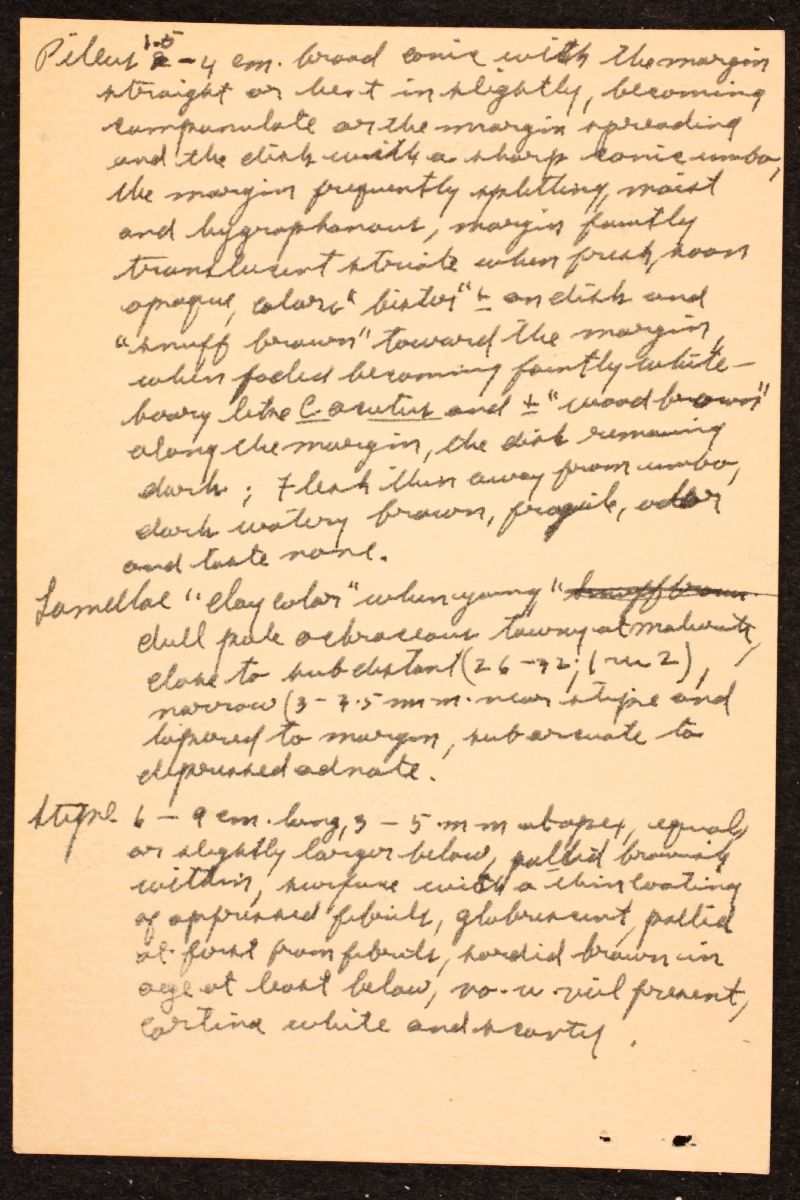 Pileus 1.5 - 4 cm. broad conic with the margin
straight or bent in slightly, becoming
campanulate or the margin spreading
and the disk with a sharp conic umbo,
the margin frequently splitting, moist
and hygrophanous, margin faintly
translucent striate when fresh, soon
opaque, colors "bister" ± on disk and
"snuff brown" toward the margin,
when faded becoming faintly white-
hoary like C. acutus and ± "wood brown"
along the margin, the disk remaining
dark; flesh thin away from umbo,
dark watery brown, fragile, odor
and taste none.
Lamellae "clay color" when young "snuff brown
dull pale ochraceous tawny at maturity,
close to subdistant (26-32; l in 2),
narrow (3 - 3.5 mm. near stipe and
tapered to margin, subarcuate to
depressed adnate.
Stipe 6 - 9 cm. long, 3 - 5 mm at apex, equal,
or slightly larger below, pallid brownish
within, surface with a thin coating
of appressed fibrils, glabrescent, pallid
at first from fibrils, sordid brown in
age at least below, no u veil present,
cortina white and scanty.